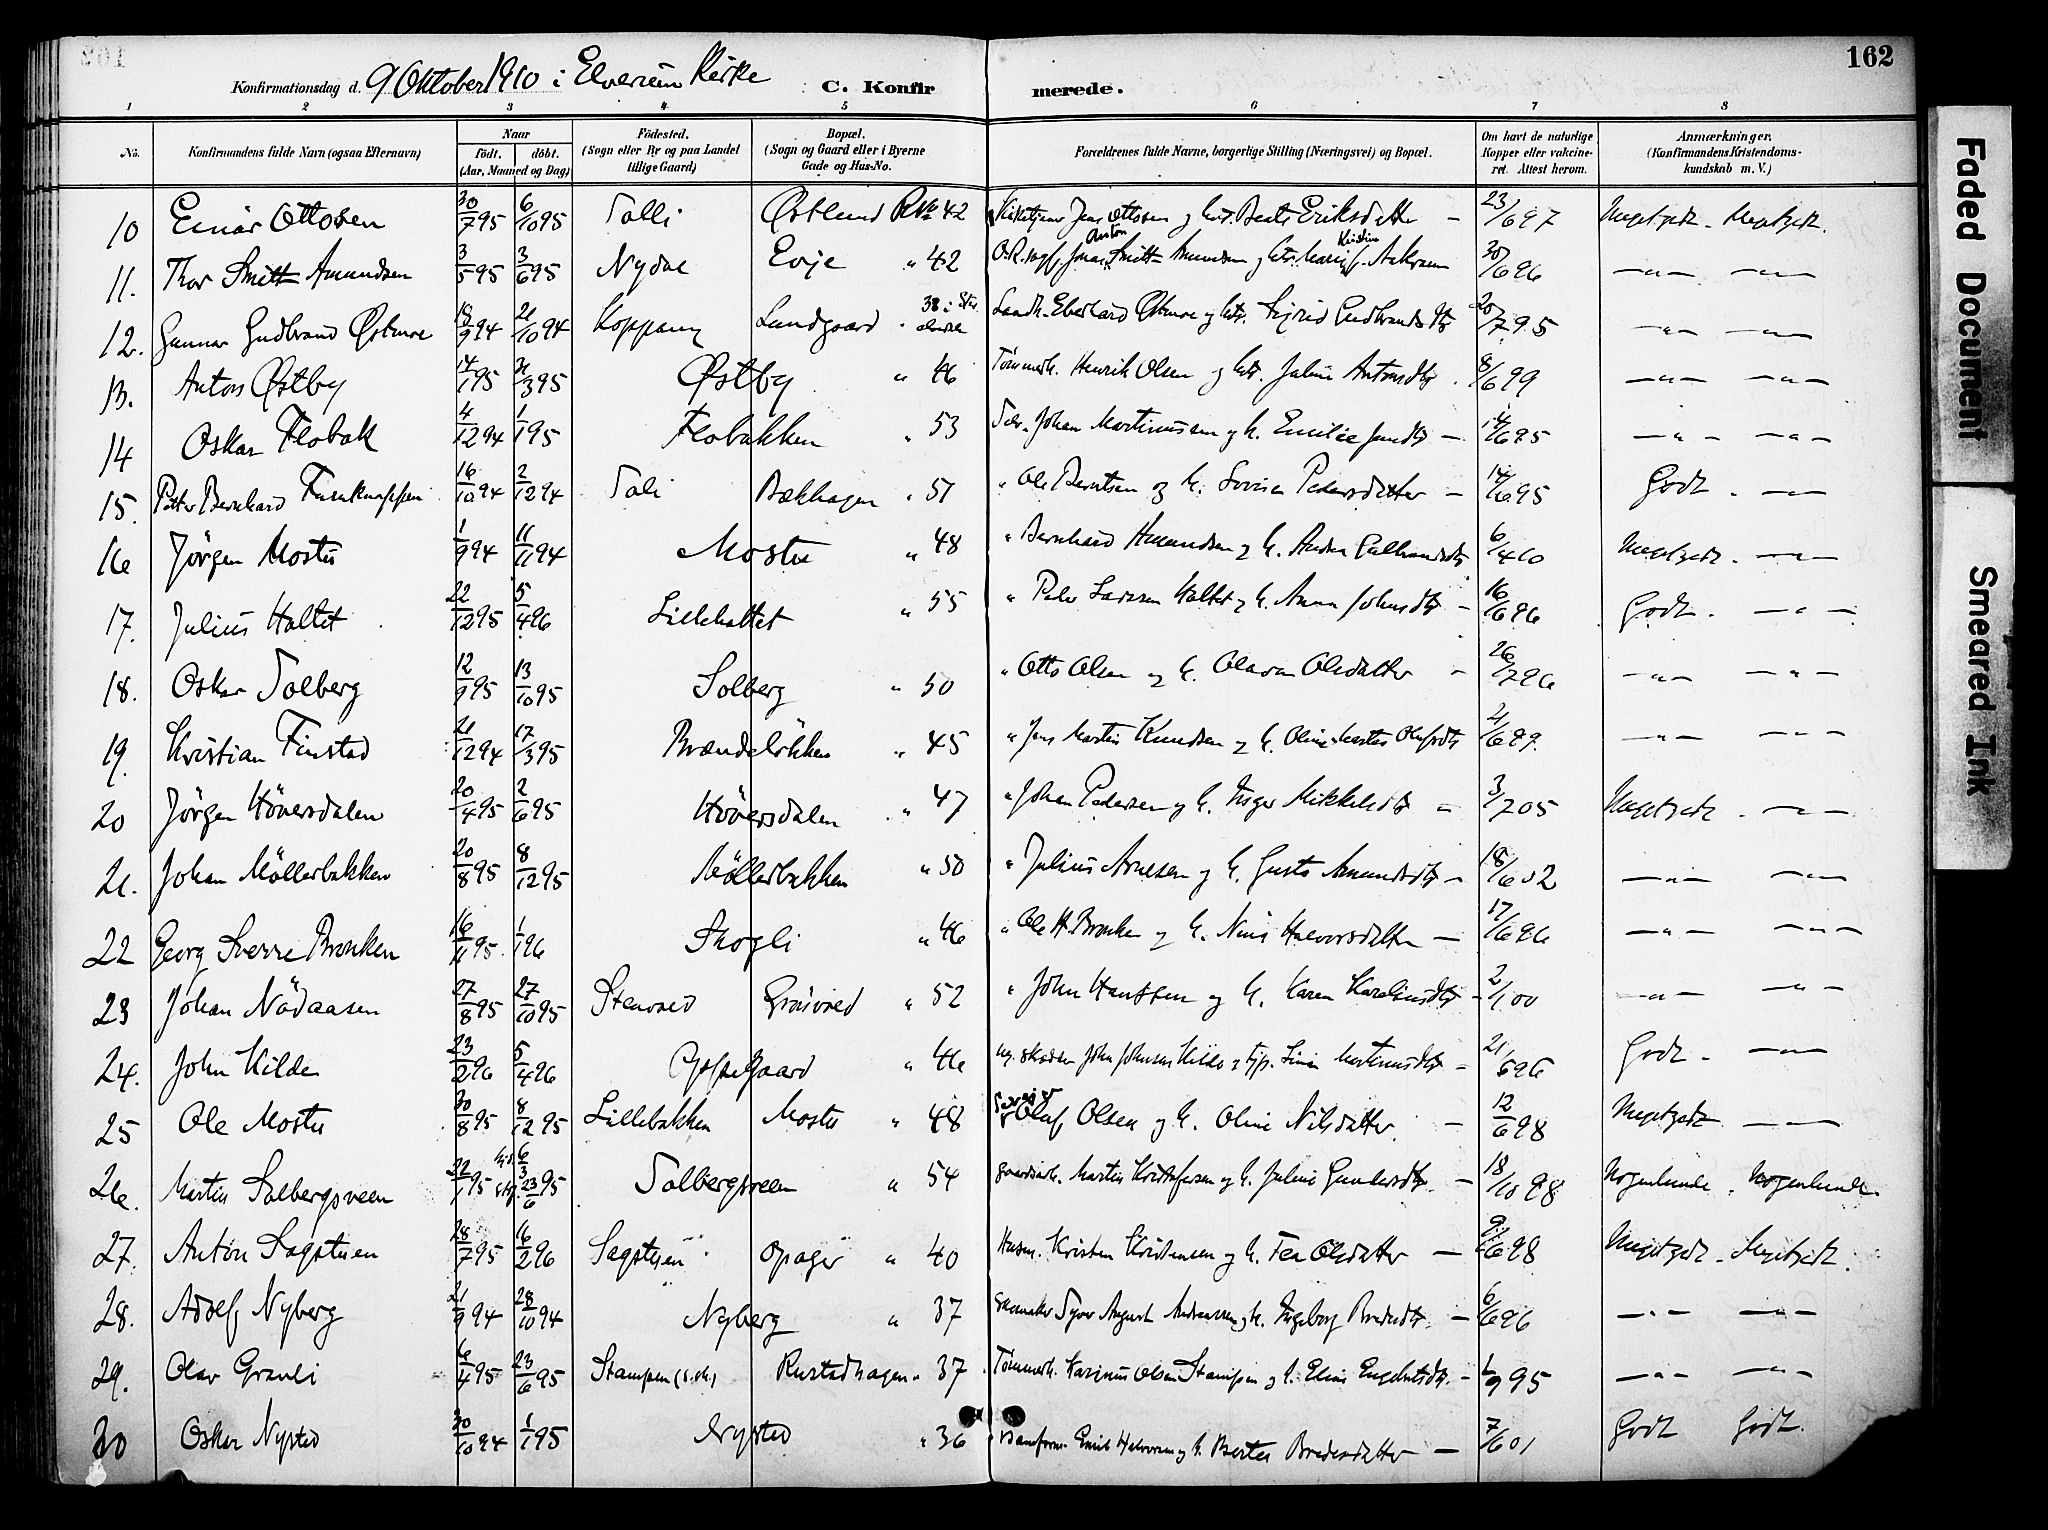 162
Konfirmationsdag d. 9 Oktober 1910 i Elverum Kirke C. Konfirmerede.
1 2 3 4 5 6 7 8
No. Konfirmandens fulde Navn (ogsaa Efternavn) Naar födt. döbt. (Aar, Maaned og Dag) Födested. (Sogn eller By og paa Landet tillige Gaard) Bopæl. (Sogn og Gaard eller i Byerne Gade og Hus-No. Forældrenes fulde Navne, borgerlige Stilling (Næringsvei) og Bopæl. Om havt de naturlige Kopper eller vakcineret. Attest herom. Anmærkninger. (Konfirmandens Kristendomskundskab m. V.)
10 Einar Ottosen 30/7 95 6/10 95 Solli Østlund 42 Jens Ottosen og Beate Eriksdatter — 23/6 97 Megetgodt. Megetgodt.
11. Thor Smitt Amundsen 3/5 95 3/6 95 Nydal Evje " 42 Jonas Anton Smitt Amundsen 30/6 96 —"— —"—
12. Gunnar Gudbrand Østmoe 18/9 94 21/10 94 Koppang Lundgaard Landh. Eberhard Østmoe og Sigrid Gudbrandsdtr 20/7 95 —"— —"—
13. Anton Østby 14/1 95 31/3 95 Østby " 46 Tømmerh. Henrik Olsen og Juline Antonsdtr 8/6 99 —"— —"—
14 Oskar Flobak 4/12 94 1/1 95 Flobakken " 53 Johan Martinussen og h. Emilie — 14/6 95 —"— —"—
15. Petter Bernhard Furuknappen 16/10 94 2/12 94 Soli Bækhagen " 51 " Ole Berntsen og h. Lovise Pedersdatter — 14/6 95 Godt. —"—
16 Jörgen Mostu 1/9 94 11/11 94 Mostu " 48 " Bernhard Amundsen og h. 6/4 10 Megetgodt. —"—
17. Julius Haltet 22/12 95 5/4 96 Lillehaltet " 55 " Peder Larssen Haltet og h. Anna Johnsdtr — 16/6 96 Godt. —"—
18. Oskar Solberg 12/9 95 13/10 95 Solberg " 50 " Otto Olsen og h. Olava Olsdatter — 26/7 96 —"— —"—
19. Kristian Finstad 21/12 94 17/3 95 Brændelökken " 45 " Jens Martin Knudsen og h. 21/6 99. —"— —"—
20 Jörgen Höversdalen 20/4 95 2/6 95 Höversdalen " 47 " Johan Pedersen og h. Inger Mikkelsdtr — 3/7 05 Megetgodt. —"—
21. Johan Möllerbakken 20/8 95 8/12 95 Möllerbakken " 50 " Julius Arnesen og h. Gusta Amundsdtr — 18/6 02 —"— —"—
22 Georg Sverre Bronken 16/11 95 1/1 96 Skogli " 46 " Ole H. Bronken og h. Nina Halvorsdatter — 17/6 96 —"— —"—
23 Johan Nödaasen 27/8 95 27/10 95 Stenvad Grasvaed " 52 " John Hanssen og h. Karen Karelinusdtr — 2/1 00 —"— —"—
24. John Kilde 23/2 96 5/4 96 Gopsegaard " 46 John Johnsen Kilde 21/5 96 Godt. —"—
25 Ole Mostu 30/8 95 8/12 95 Lillebakken Mostu " 48 Olaf Olsen og h. Oline Nilsdatter. — 12/6 98 Megetgodt. —"—
26. Martin Solbergsveen 22/1 95 6/3 23/6 95 Solbergsveen " 54 Martin Kristofersen og h. Juline Gundersdtr. — 18/10 98 Nogenlunde. Nogenlunde
27. Anton Sagstuen 28/7 95 16/2 96 Sagstuen Opager " 40 Husm. Kristen Christensen og h. Tea Olsdatter — 9/6 98 Megetgodt. Megetgodt.
28. Adolf Nyberg 21/9 94 28/10 94 Nyberg " 37 Skomaker Syver August Andreassen og h. Ingeborg — 6/6 96 —"— —"—
29. Olav Granli 6/4 95 23/6 95 Stampen Rustadhagen " 37 Tømmerh. Karinus Olsen Stampen og h. Eline Engebretsdtr. — 6/9 95 —"— —"—
30 Oskar Nysted 30/10 94 1/1 95 Nysted " 36 Emil Halvorsen og h. Bertea Bredesdatter — 7/6 01 Godt Godt.
Faded Document
Smeared Ink